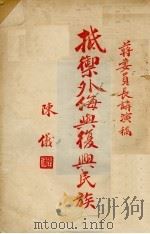 蔣委員長講演稿
抵禦外侮與復興民族
陳儀